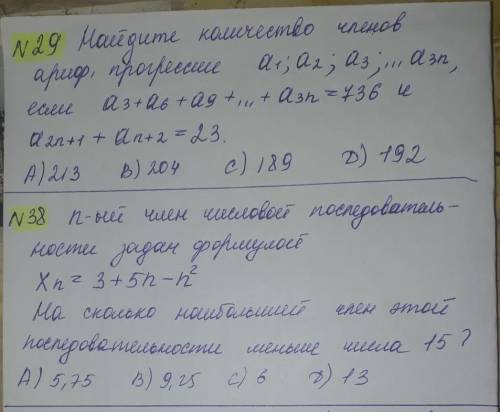 N29 Найдите количество членов
ариф. прогрессие a₁; a₂; a₃; ... a₃ₙ,
если a₃+a₆+a₉+...+a₃ₙ=736 и
a₂ₙ₊₁ + aₙ₊₂ = 23.
A) 213 B) 204 C) 189 D) 192
N38 n-ый член числовой последователь-
ности задан формулой
Xₙ = 3+5n-n²
На сколько наибольший член этой
последовательности меньше числа 15?
A) 5,75 B) 9,25 C) 6 D) 13